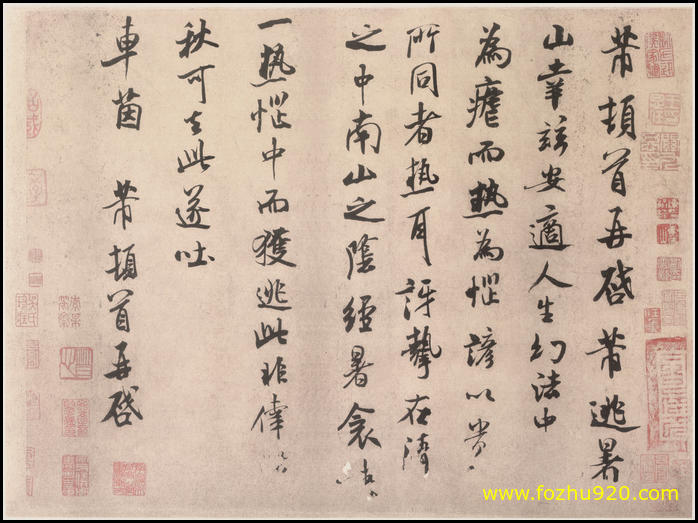 芾頓首再啓芾逃暑
山幸兹安適人生幻法中
為瘧而熱為惱諺以貴
所同者熱耳訝摯在清
之中南山之陰經暑衾
一熱惱中而獲逃此非倖
秋可去此遂吐
車茵 芾頓首再啓
www.fozhu920.com